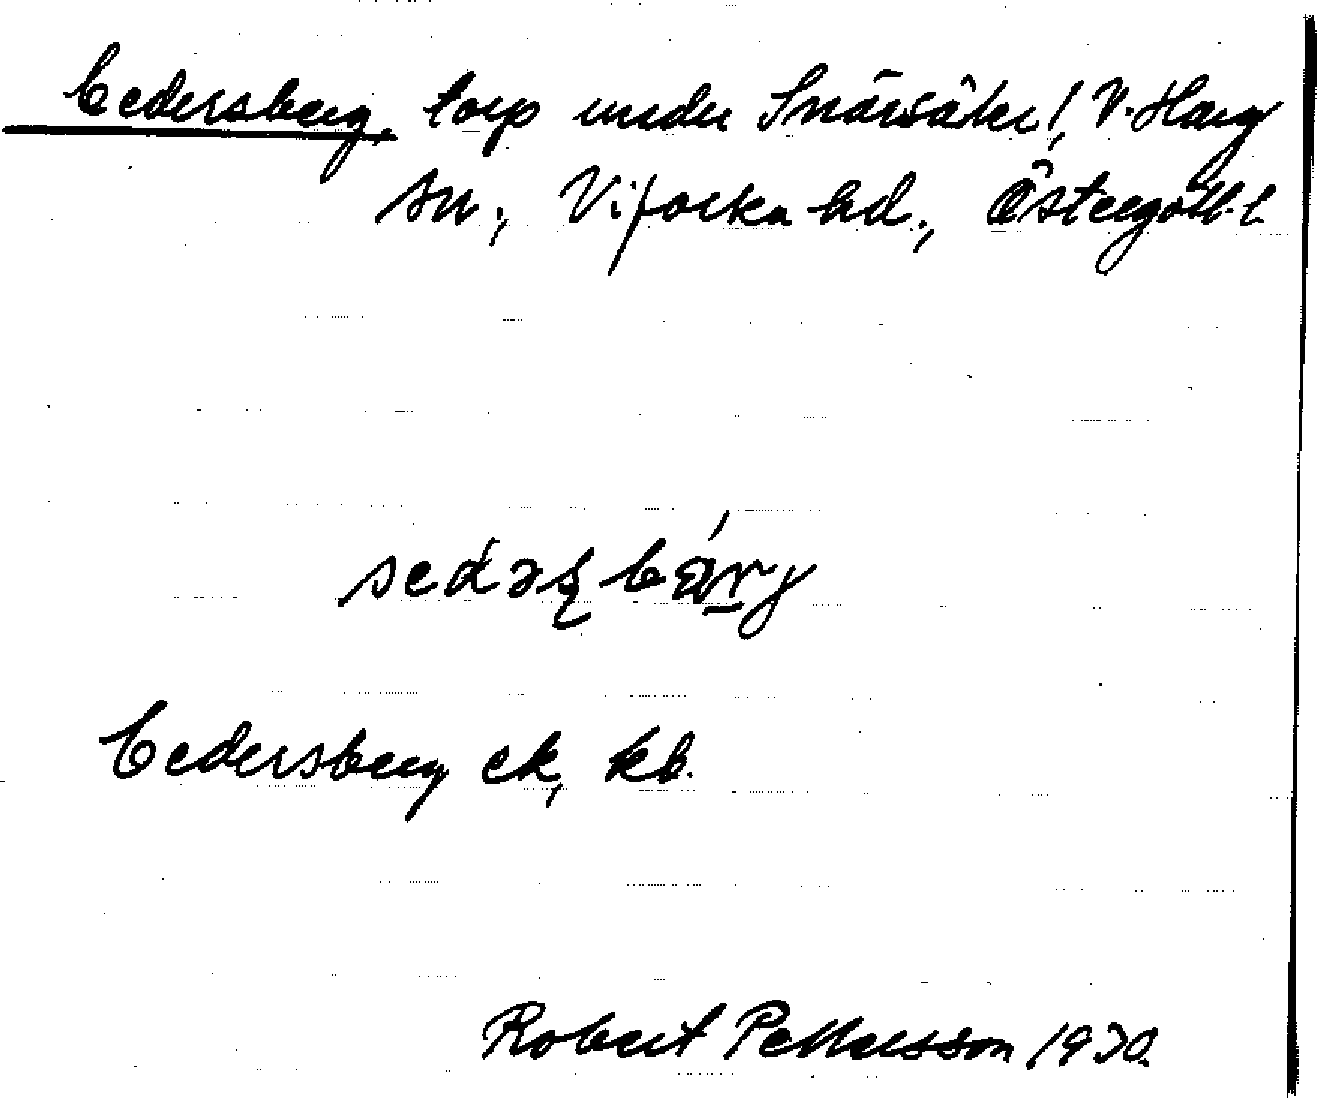 Cedersberg, torp under Snärsäter!, V. Harg
sn., Vifolka hd., Östergötl. l.
Cedersberg ek, kb.
Robert Pettersson 1930.